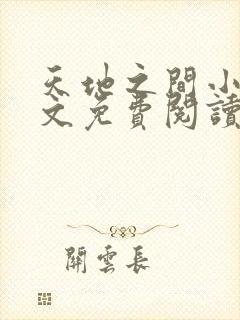 天地之間小
文免費閱讀
關雲長